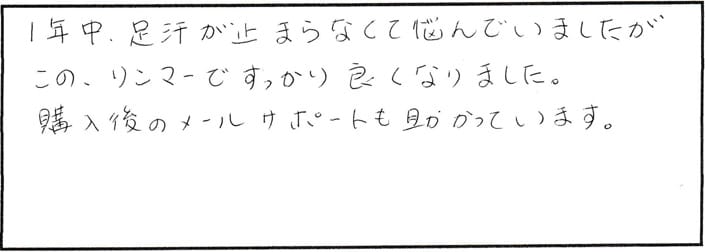 1年中、足汗が止まらなくて悩んでいましたが
この、リンマーですっかり良くなりました。
購入後のメールサポートも助かっています。